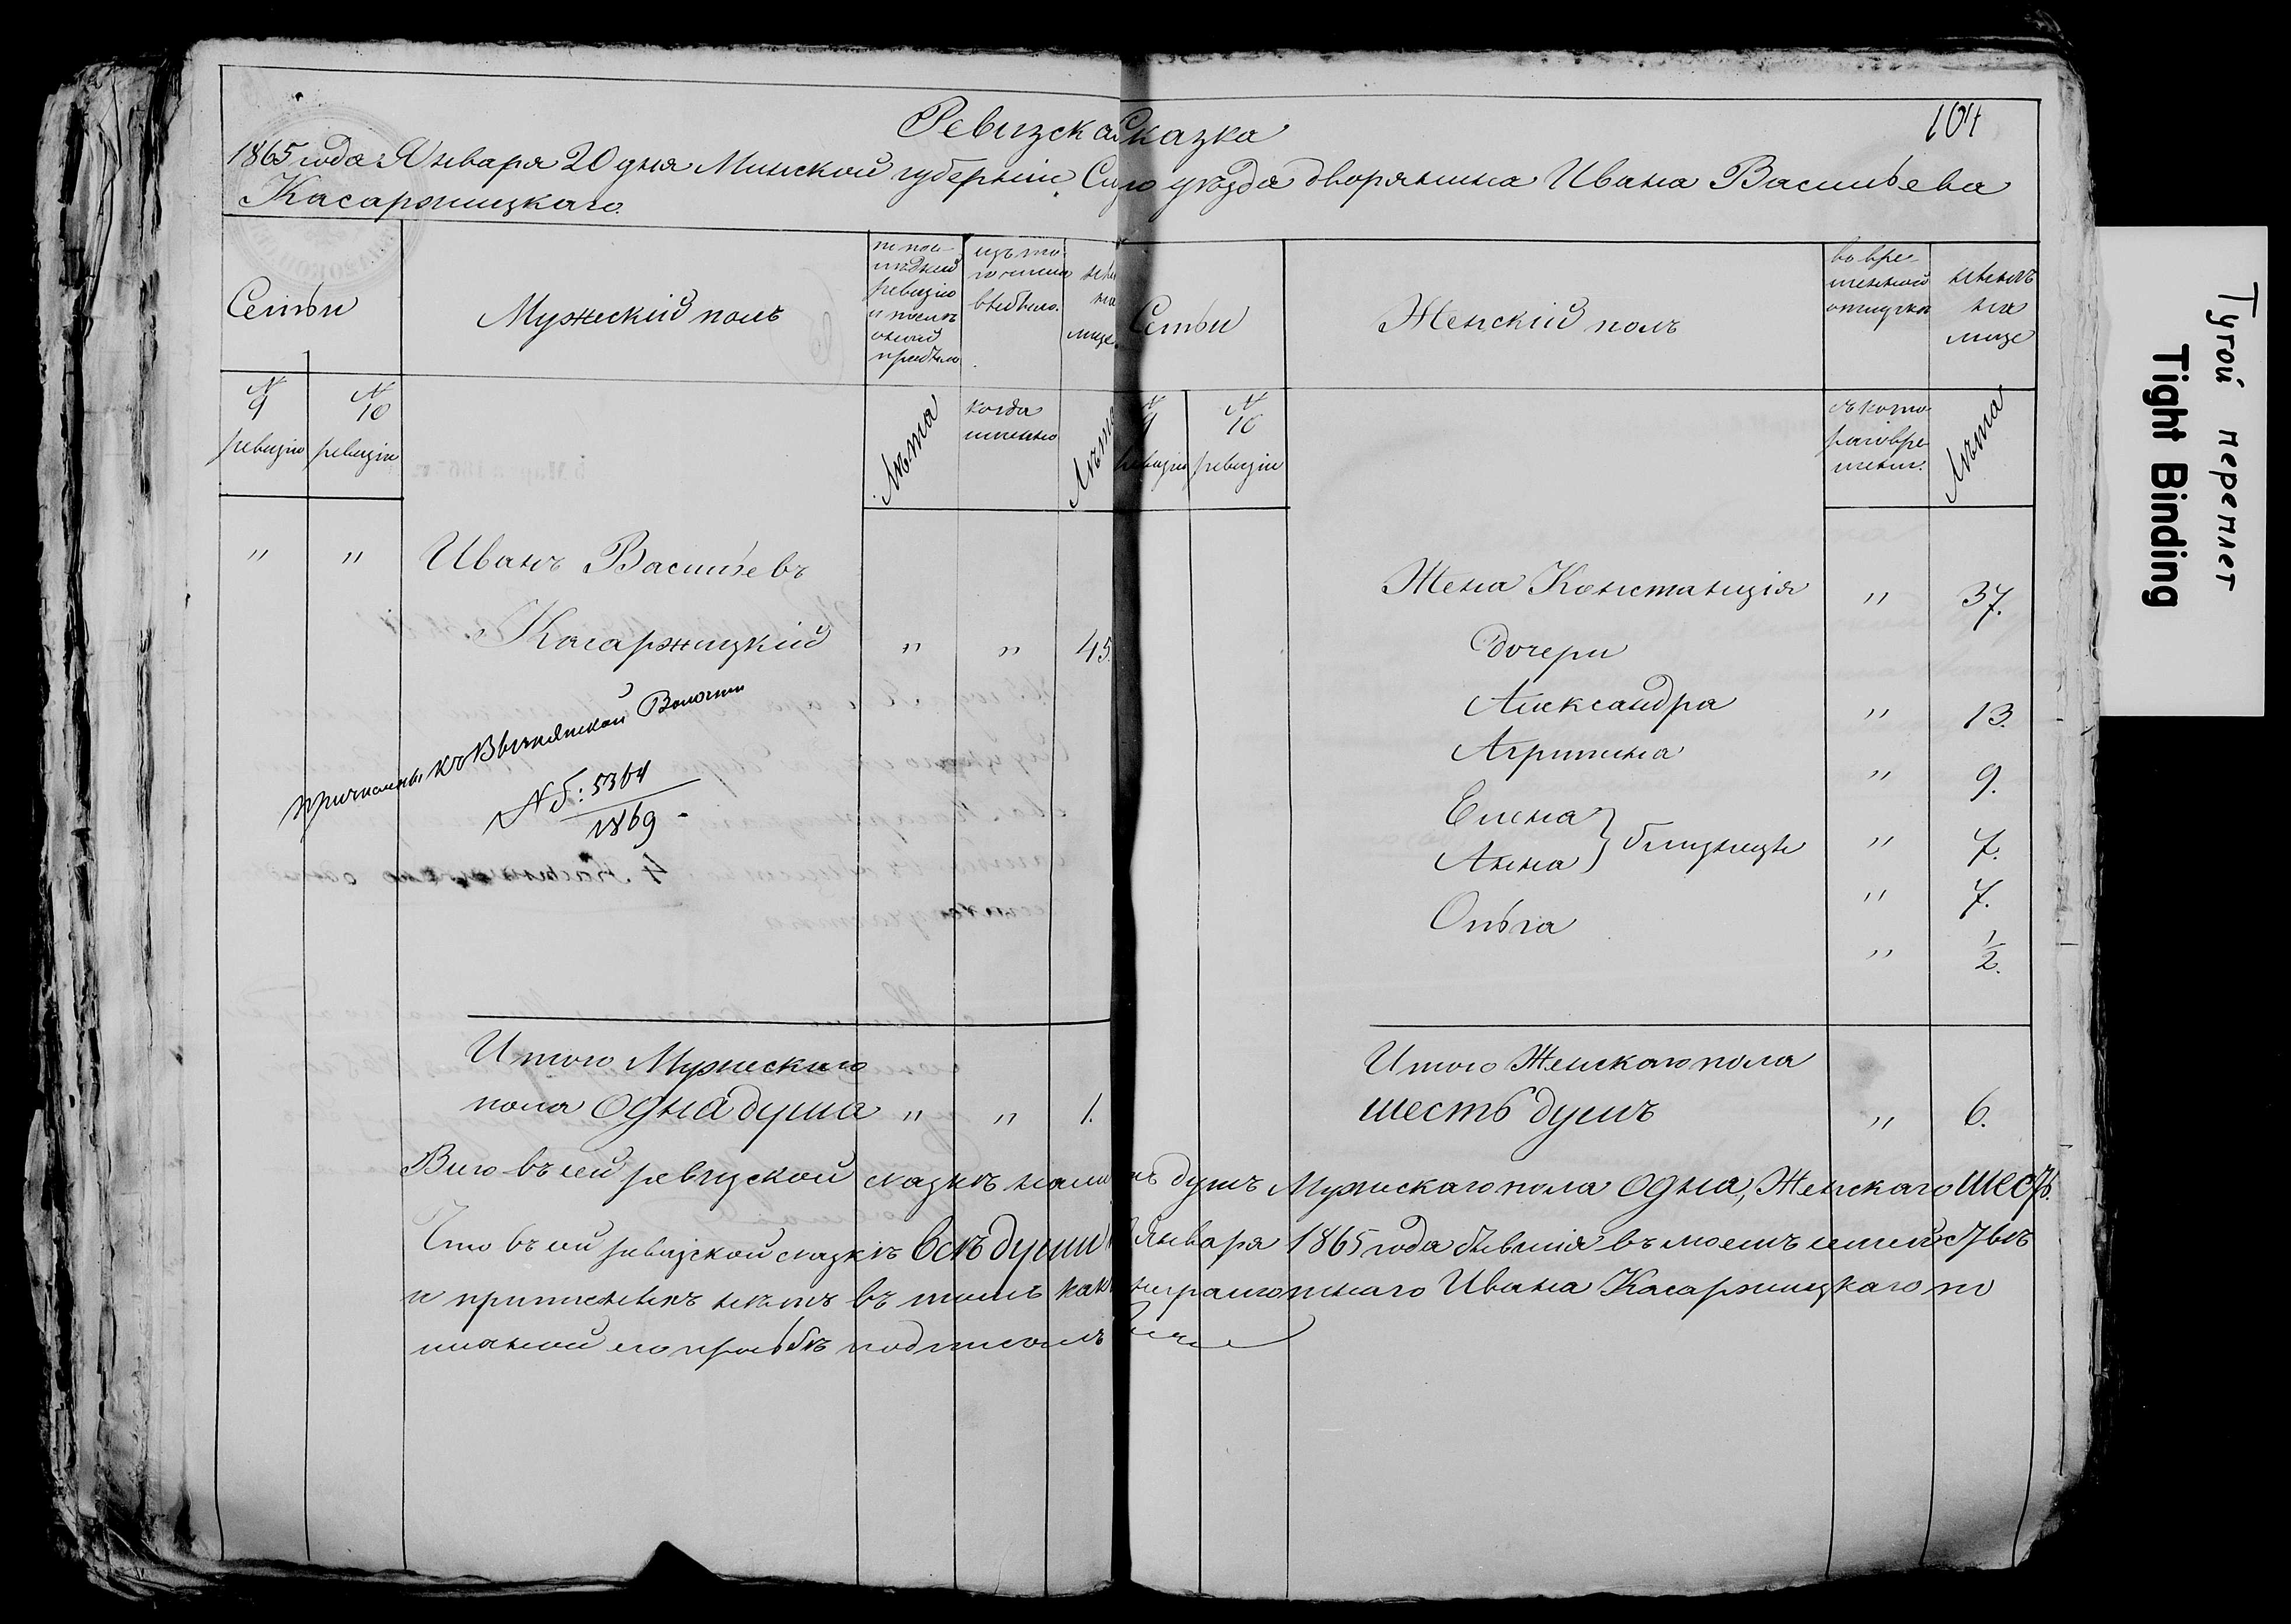 104
Ревизская Сказка
1865 года Января 20 дня Минской губерніи Слуц уѣзда дворянина Ивана Васильева
Касаржицкаго.
Семьи
Мужескій полъ
по пос
лѣдней
ревизіи
и послѣ
оной
прибыло
изъ то
го числа
выбыло.
лице.
Семьи
Женскій полъ
во вре
менной
отлучкѣ
нынѣ
на
лице
№ 9 ревизіи
№ 10 ревизіи
Лѣта
когда
именно
Лѣта
№ 9 ревизіи
№ 10 ревизіи
съ кото
раго вре
мени.
Лѣта
" " Иванъ Васильевъ
Касаржицкій " " 45.
Причисленъ къ Волости
№ б: 5364
1869
Жена Констанція " 37.
Дочери
Александра " 13.
Агрипина " 9.
Елена } близнецы " 7.
Анна " 7.
Ольга " 1/2.
Итого Мужескаго
пола одна душа " " 1.
Итого Женскаго пола
шесть душъ " 6.
Всего въ сей ревизской сказкѣ душъ Мужескаго пола одна, Женскаго шесть.
Что въ сей ревизской сказкѣ всѣ души Января 1865 года бывшія въ моемъ семействѣ
и прописныхъ нѣтъ въ томъ неграмотнаго Ивана Касаржицкаго по
личной его прозьбѣ подписалъ
Тугой переплет
Tight Binding